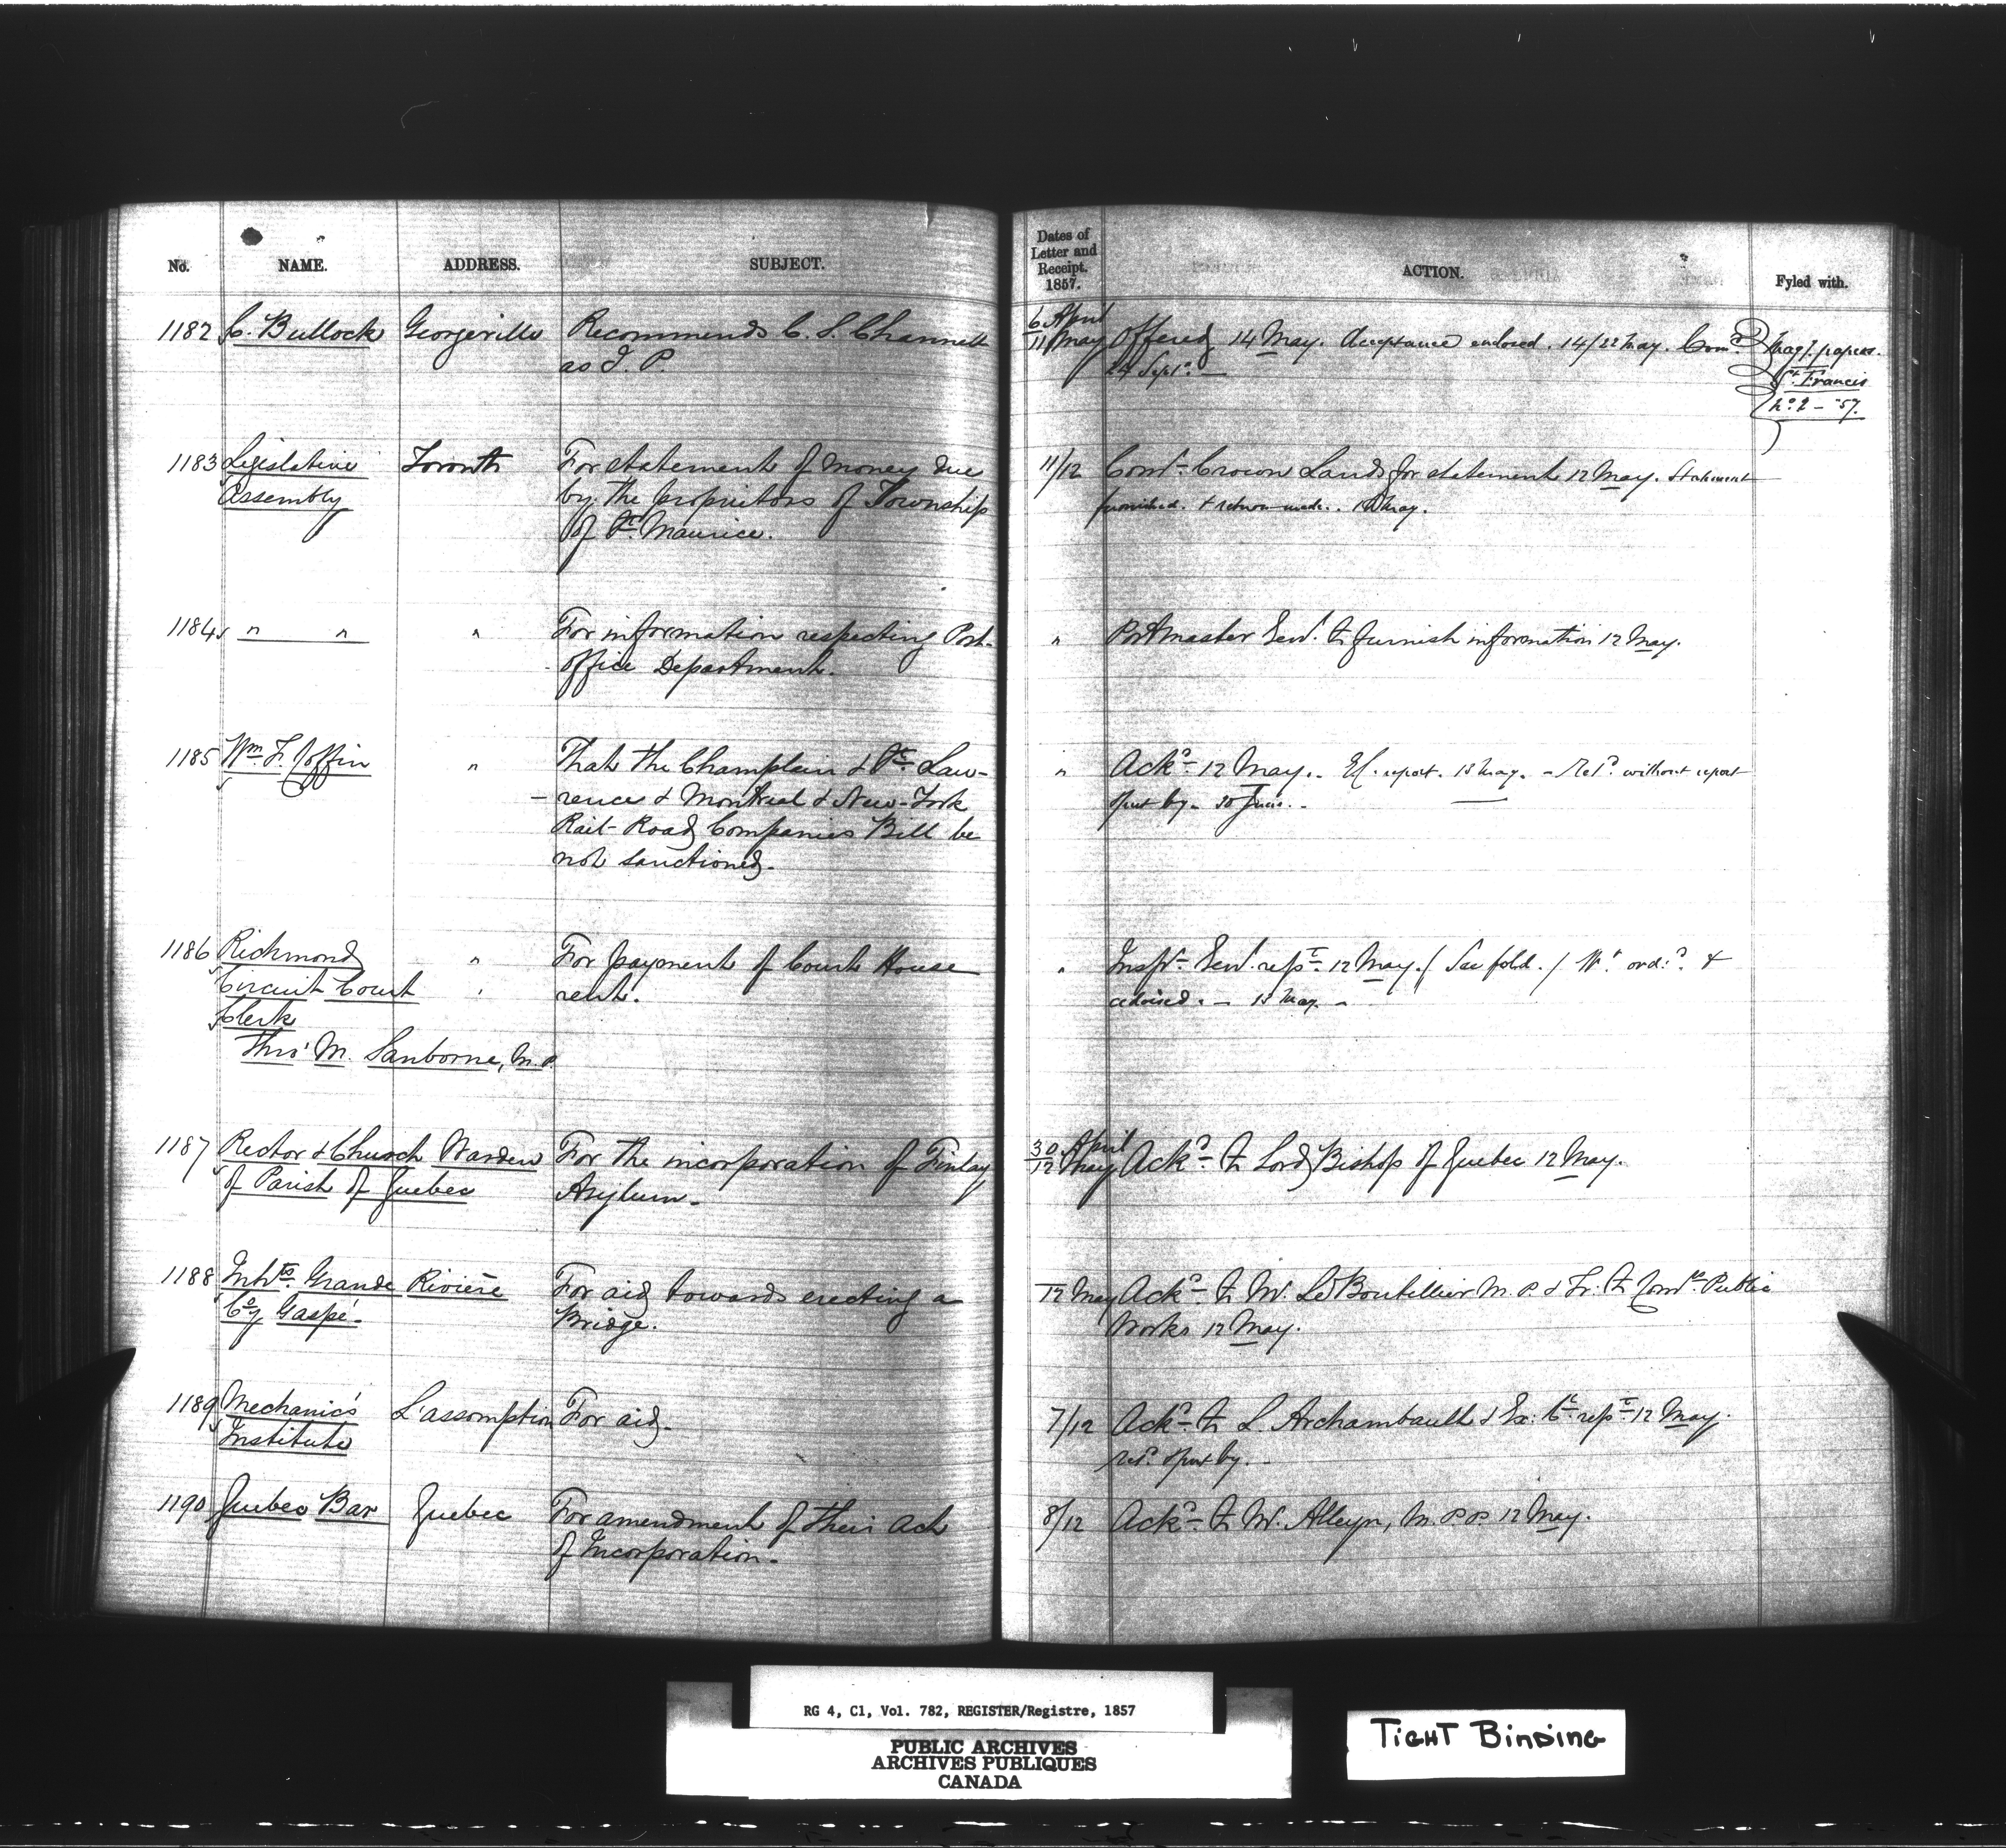 No. NAME. ADDRESS. SUBJECT.
1182 C. Bullock Georgeville Recommends C. S. Channell
as J. P.
1183 Legislative Toronto For statement of money due
Assembly by the proprietors of Township
of St. Maurice.
1184 " " " For information respecting Post-
office Department.
1185 Wm. F. Coffin " That the Champlain & St. Law-
-rence & Montreal & New-York
Rail-Road Companies Bill be
not sanctioned.
1186 Richmond " For payment of Court House
Circuit Court " rent.
Clerk
Thro' M. Sanborne, M.P.
1187 Rector & Church Wardens For the incorporation of Finlay
of Parish of Quebec Asylum.
1188 Inhts. Grande Rivière For aid towards erecting a
Coy Gaspé. Bridge.
1189 Mechanics' L'assomption For aid.
Institute
1190 Quebec Bar Quebec For amendment of their Act
of Incorporation.
Dates of
Letter and
Receipt.
1857.
ACTION. Fyled with.
6 April
11 May Offered 14 May. Acceptance enclosed. 14/22 May. Comn.
24 Septr.
Magt. papers.
St. Francis
No. 2 - '57.
11/12 Comr. Crown Lands for statement 12 May. Statement
furnished. & return made. May.
" Postmaster Genl. to furnish information 12 May.
" Ackd. 12 May. - Ex. report. 13 May. - Retd. without report
& put by. 30 June.
" Inspr. Genl. rept. 12 May. / See fold. / Wt. ordd. &
advised. - 13 May. -
30 April
12 May Ackd. to Lord Bishop of Quebec 12 May.
12 May Ackd. to Mr. Le Boutillier M.P. & Tr. to Comr. Public
Works 12 May.
7/12 Ackd. to L. Archambault & Ex: Cl. rept. 12 May.
retd. & put by.
8/12 Ackd. to Mr. Alleyn, M.P.P. 12 May.
RG 4, C1, Vol. 782, REGISTER/Registre, 1857
PUBLIC ARCHIVES
ARCHIVES PUBLIQUES
CANADA
TIGHT BINDING